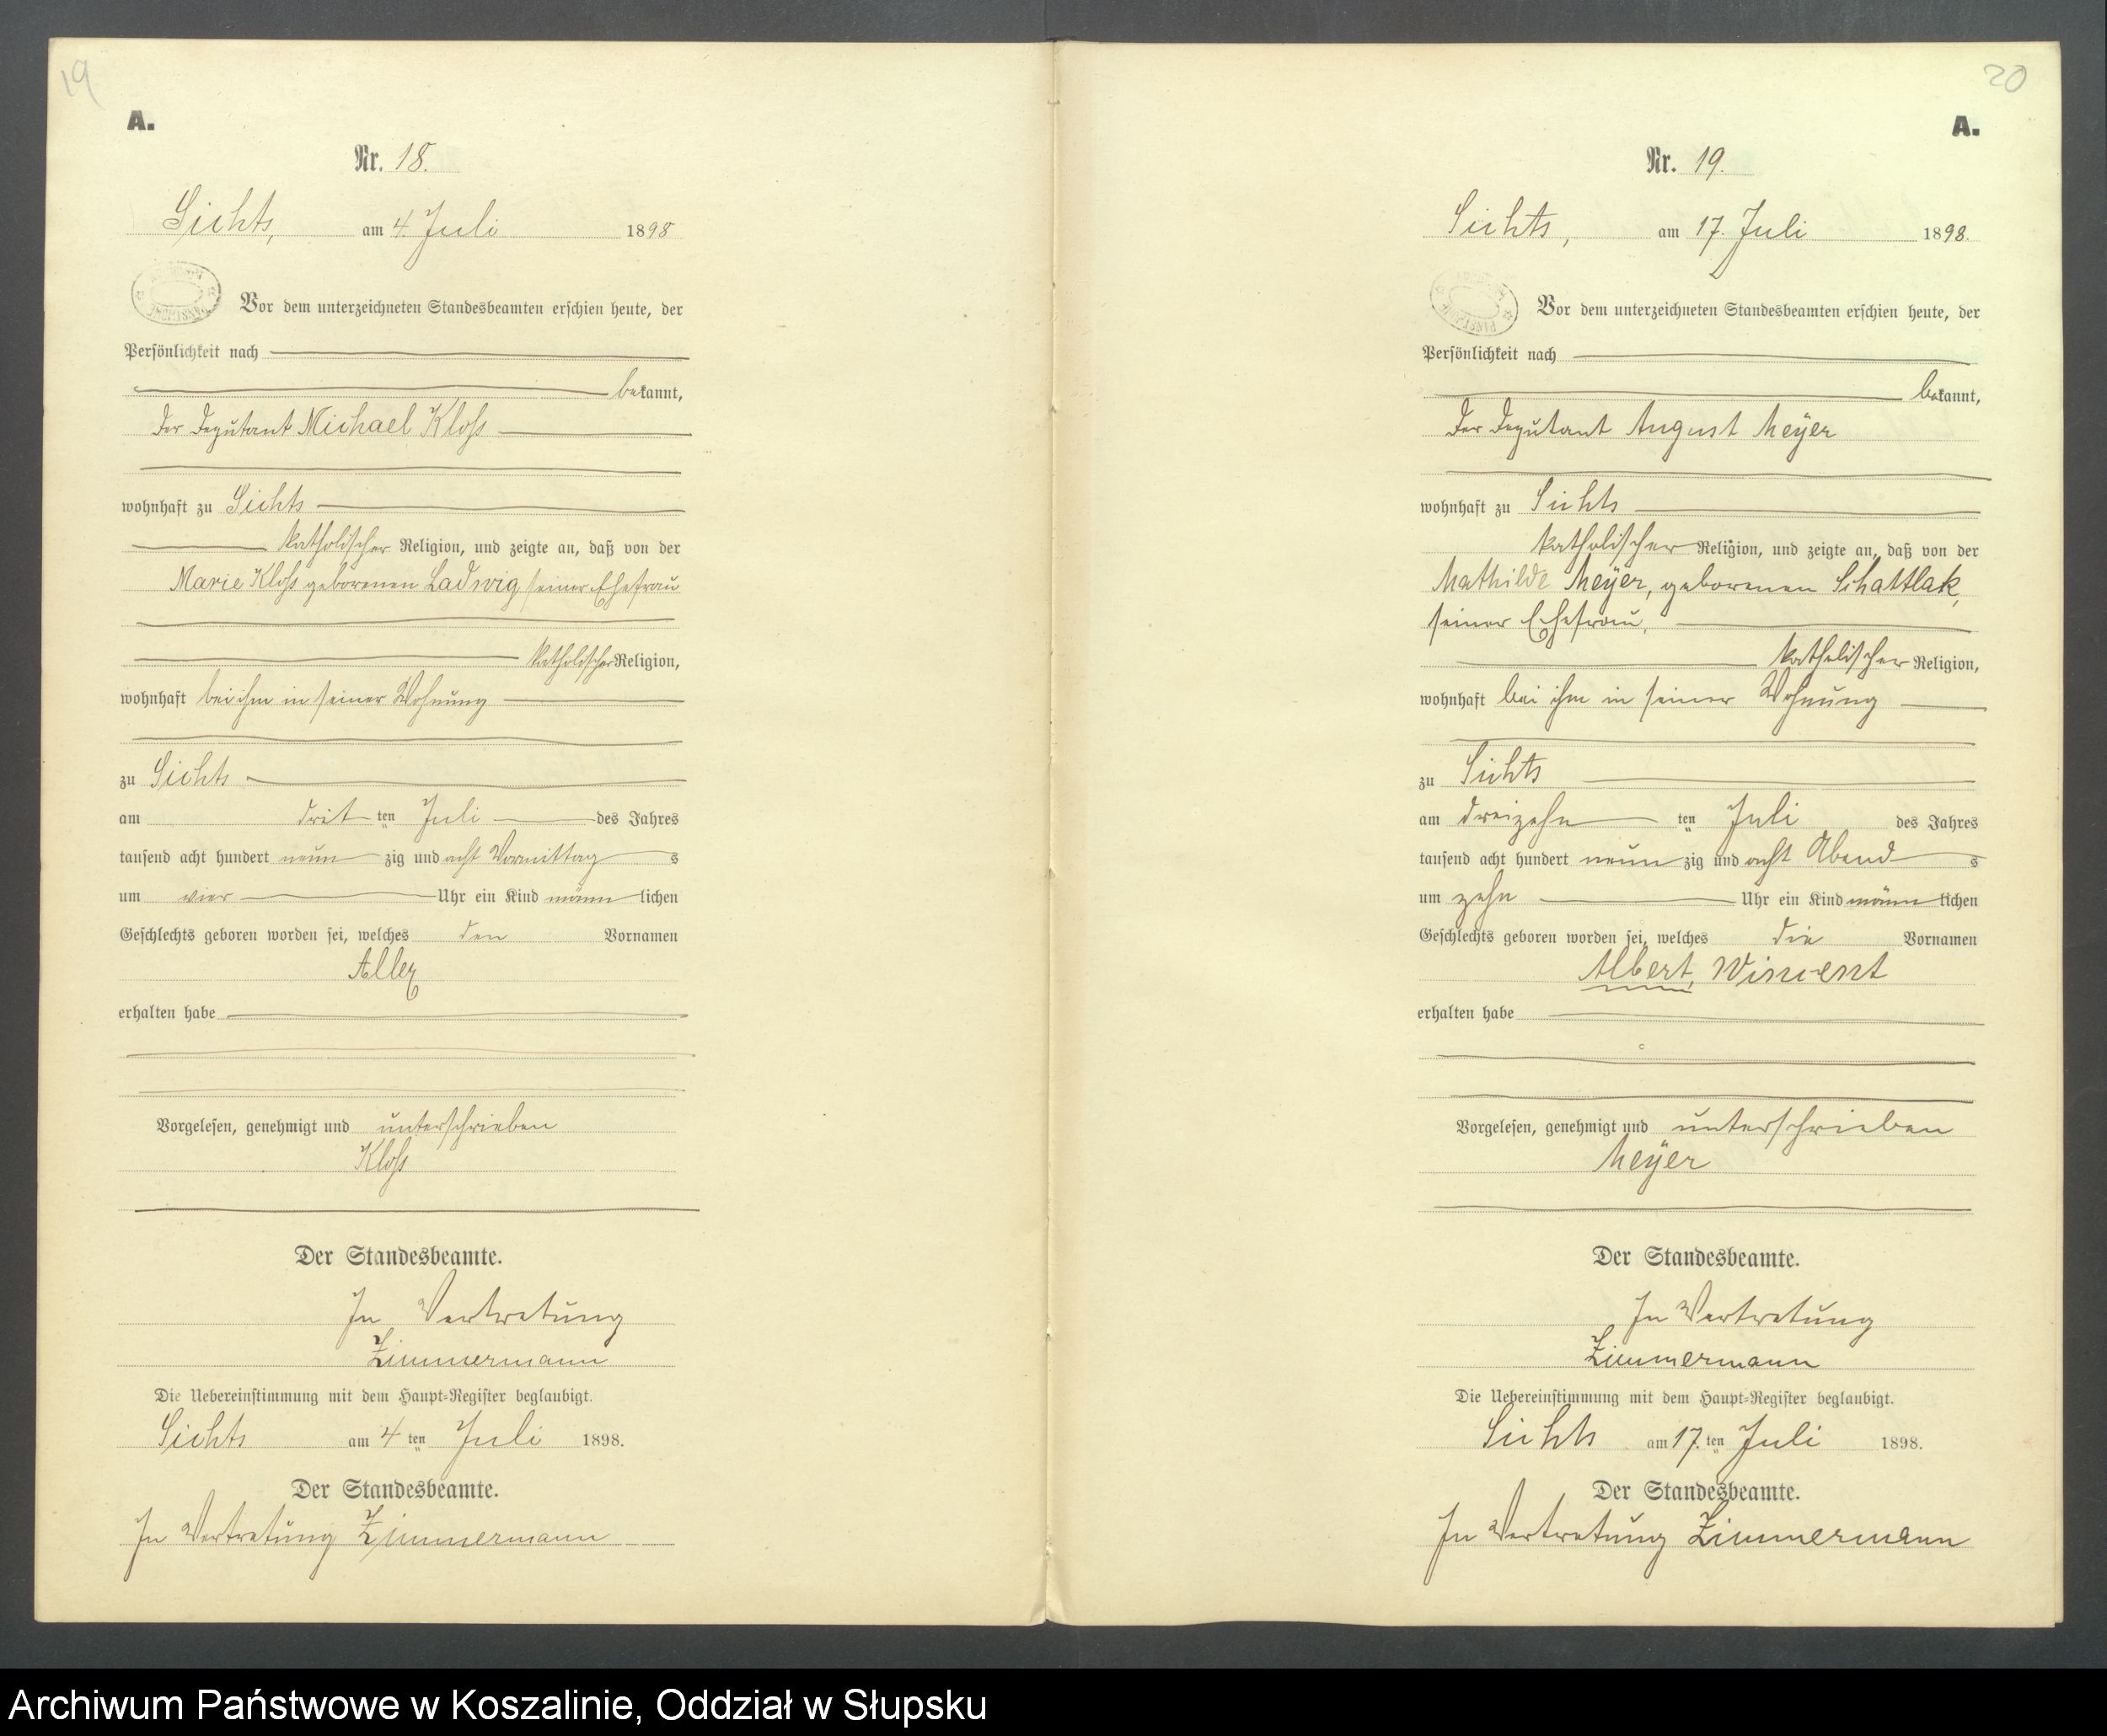 19
A.
Nr. 18.
Sichts, am 4. Juli 1898
Vor dem unterzeichneten Standesbeamten erschien heute, der
Persönlichkeit nach
bekannt,
der Deputant Michael Kloß
wohnhaft zu Sichts
katholischer Religion, und zeigte an, daß von der
Marie Kloß geborenen Ladwig, seiner Ehefrau
katholischer Religion,
wohnhaft bei ihm in seiner Wohnung
zu Sichts
am dritten Juli des Jahres
tausend acht hundert neunzig und acht Vormittags
um vier Uhr ein Kind männlichen
Geschlechts geboren worden sei, welches den Vornamen
erhalten habe
Vorgelesen, genehmigt und unterschrieben
Kloß
Der Standesbeamte.
In Vertretung
Zimmermann
Die Uebereinstimmung mit dem Haupt-Register beglaubigt.
Sichts am 4ten Juli 1898.
Der Standesbeamte.
In Vertretung Zimmermann
20
A.
Nr. 19.
Sichts, am 17. Juli 1898.
Vor dem unterzeichneten Standesbeamten erschien heute, der
Persönlichkeit nach
bekannt,
der Deputant August Meÿer
wohnhaft zu Sichts
katholischer Religion, und zeigte an, daß von der
Mathilde Meÿer, geborenen Schattlak,
seiner Ehefrau,
katholischer Religion,
wohnhaft bei ihm in seiner Wohnung
zu Sichts
am dreizehnten Juli des Jahres
tausend acht hundert neunzig und acht Abends
um zehn Uhr ein Kind männlichen
Geschlechts geboren worden sei, welches die Vornamen
Albert, Wincent
erhalten habe
Vorgelesen, genehmigt und unterschrieben
Meÿer
Der Standesbeamte.
In Vertretung
Zimmermann
Die Uebereinstimmung mit dem Haupt-Register beglaubigt.
Sichts am 17.ten Juli 1898.
Der Standesbeamte.
In Vertretung Zimmermann
Archiwum Państwowe w Koszalinie, Oddział w Słupsku